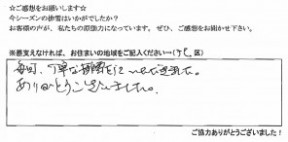 ☆ご感想をお願いします☆
今シーズンの排雪はいかがでしたか?
お客様の声が、私たちの原動力になっています。ぜひ、ご感想をお聞かせ下さい。
※差支えなければ、お住まいの地域をご記入ください→( 区)
毎回、丁寧な排雪をしていただきました。
ありがとうございました。
ご協力ありがとうございました!